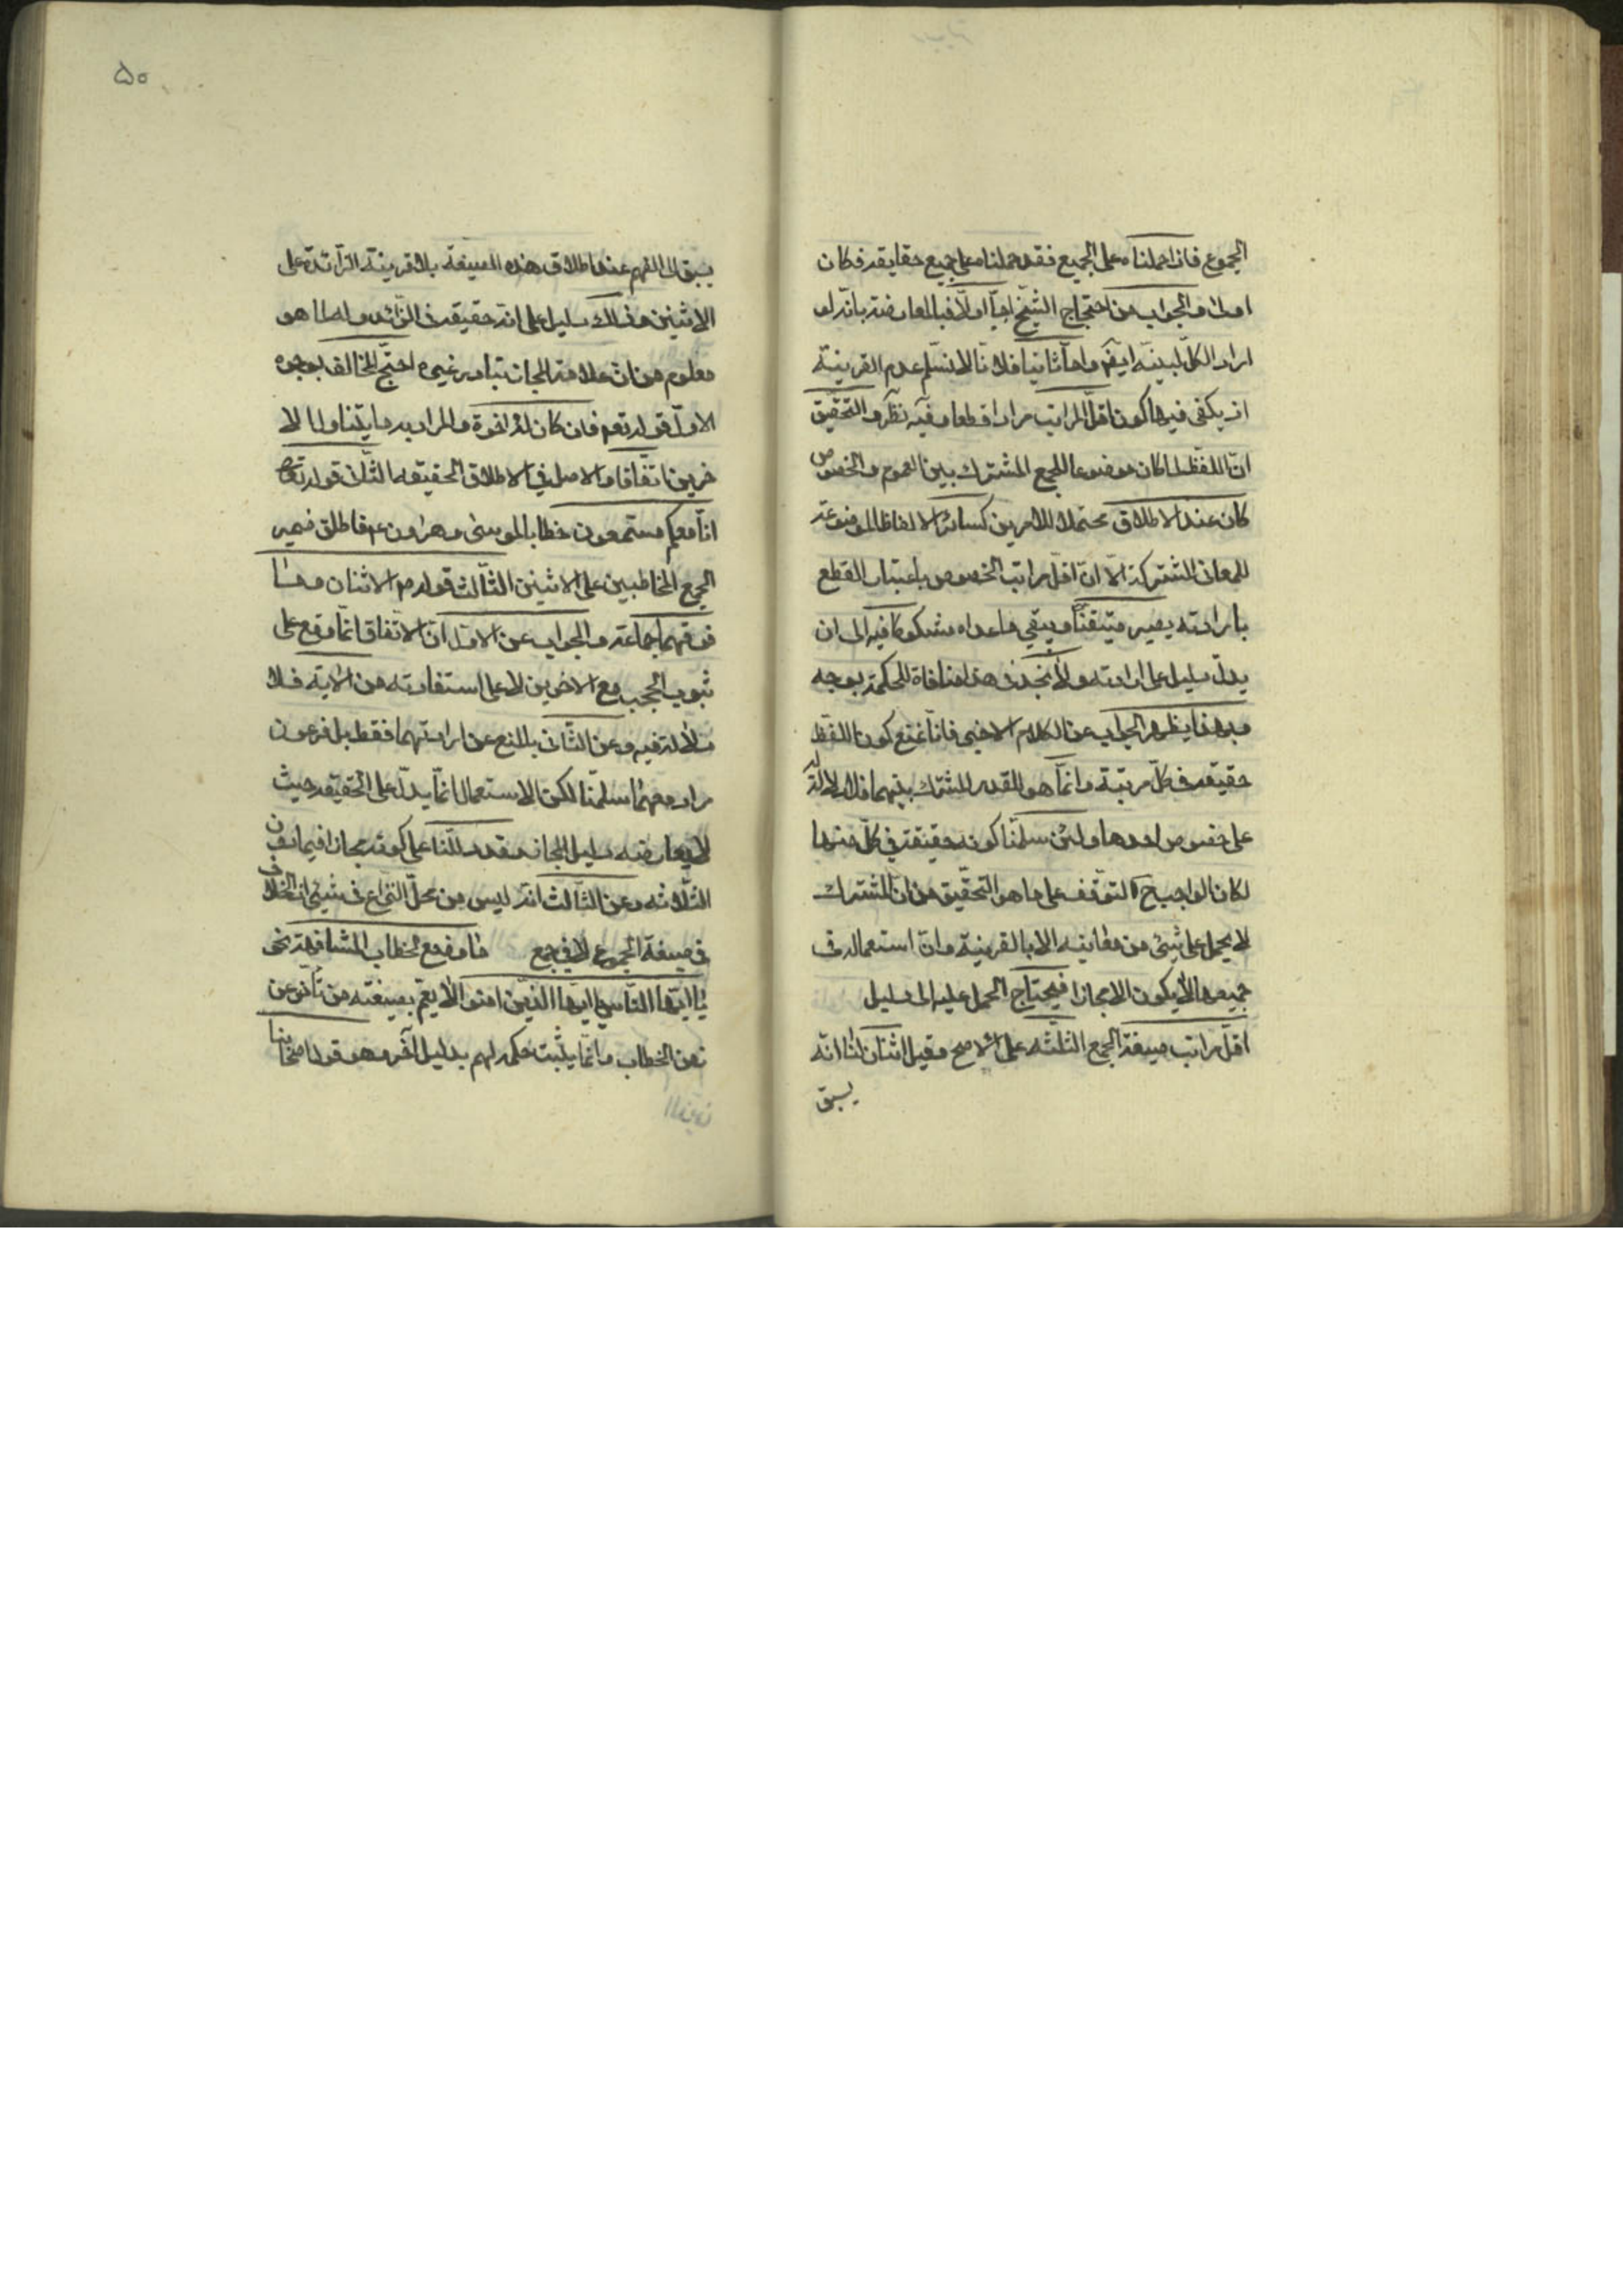 الجموع فاذا حملناه على الجميع فقد حملناه على جميع حقايقه فكان
اولى والجواب من احتجاج الشيخ اما اولا فبالمعارضة بانه لو
اراد الكل لبينه ايضم واما ثانيا فلانا لا نسلم عدم القرينة
اذ يكفى فيها كون اقل المراتب مرادا قطعا وفيه نظر والتحقيق
ان اللفظ لما كان موضوعا للجمع المشترك بين العموم والخصوص
كان عند الاطلاق محتملا للامرين كسائر الالفاظ الموضوعة
للمعانى المشتركة الا ان اقل مراتب الخصوص باعتبار القطع
بارادته يصير متيقنا ويبقى ما عداه مشكوكا فيه الى ان
يدل دليل على ارادته ولا نجد فى هذا منافاة للحكمة بوجه
وبهذا يظهر الجواب عن الكلام الاخير فانا نمنع كون اللفظ
حقيقة فى كل مرتبة وانما هو للقدر المشترك بينهما فلا دلالة له
على خصوص احدها ولئن سلمنا كونه حقيقة فى كل منها
لكان الواجب ح التوقف على ما هو التحقيق من ان المشترك
لا يحمل على شئ من معانيه الا بالقرينة وان استعماله فى
جميعها لا يكون الا مجازا فيحتاج الحمل عليه الى دليل
اقل مراتب صيغة الجمع الثلثه على الاصح وقيل اثنان لنا انه
يسبق
۵۰
يسبق الى الفهم عند اطلاق هذه الصيغة بلا قرينة الزائدة على
الاثنين وذلك دليل على انه حقيقة فى الزائد دونه لما هو
معلوم من ان علامة المجاز تبادر غيره احتج المخالف بوجوه
الاول قوله تعم فان كان له اخوة والمراد به ما يتناول الا
خوين اتفاقا والاصل فى الاطلاق الحقيقه الثانى قوله تعم
انا معكم مستمعون خطابا لموسى وهرون عم فاطلق ضمير
الجمع المخاطبين على الاثنين الثالث قوله ص الاثنان وما
فوقهما جماعة والجواب عن الاول ان الاتفاق انما وقع على
ثبوت الحجب مع الاخوين لا على استفادته من الاية فلا
دلالة فيه وعن الثانى بالمنع عن ارادتهما فقط بل فرعون
مراد معهما سلمنا لكن الاستعمال انما يدل على الحقيقه حيث
لا يعارضه دليل المجاز وقد دللنا على كونه مجازا فيما دون
الثلاثه وعن الثالث انه ليس من محل النزاع فى شئ اذ الخلاف
فى صيغة الجموع لا فى جمع ما وضع لخطاب المشافهة نحو
يا ايها الناس يا ايها الذين امنوا لا يعم بصيغته من تأخر عن
زمن الخطاب وانما يثبت حكمه لهم بدليل آخر وهو قول اصحابنا